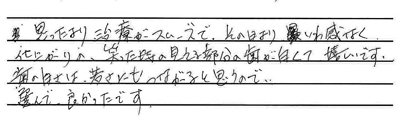 思ったより治療がスムーズで、その日より違いわ感なく
仕上がりの、笑った時の見える部分の歯が白くて嬉しいです。
歯の白さは、若さにもつながると思うので
選んで、良かったです